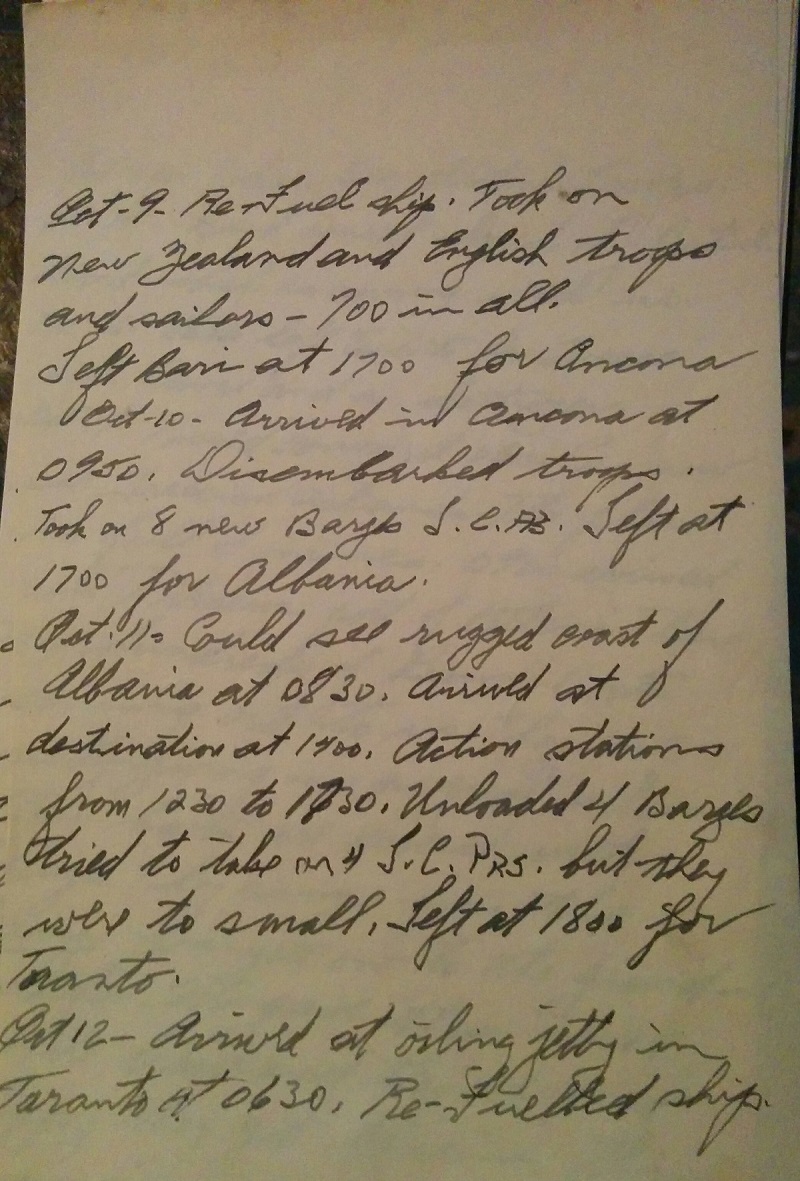 Oct-9- Re-Fuel ship. Took on
New Zealand and English troops
and sailors - 700 in all.
Left Bari at 1700 for Ancona
Oct-10- Arrived in Ancona at
0950. Disembarked troops.
Took on 8 new Barges L.C. Left at
1700 for Albania.
Oct. 11- Could see rugged coast of
Albania at 0830. Arrived at
destination at 1400. Action stations
from 1230 to 1730. Unloaded 4 Barges
tried to take on 4 L.C.PRS. but they
were to small. Left at 1800 for
Taranto.
Oct 12- Arrived at oiling jetty in
Taranto at 0630. Re-Fuelled ship.